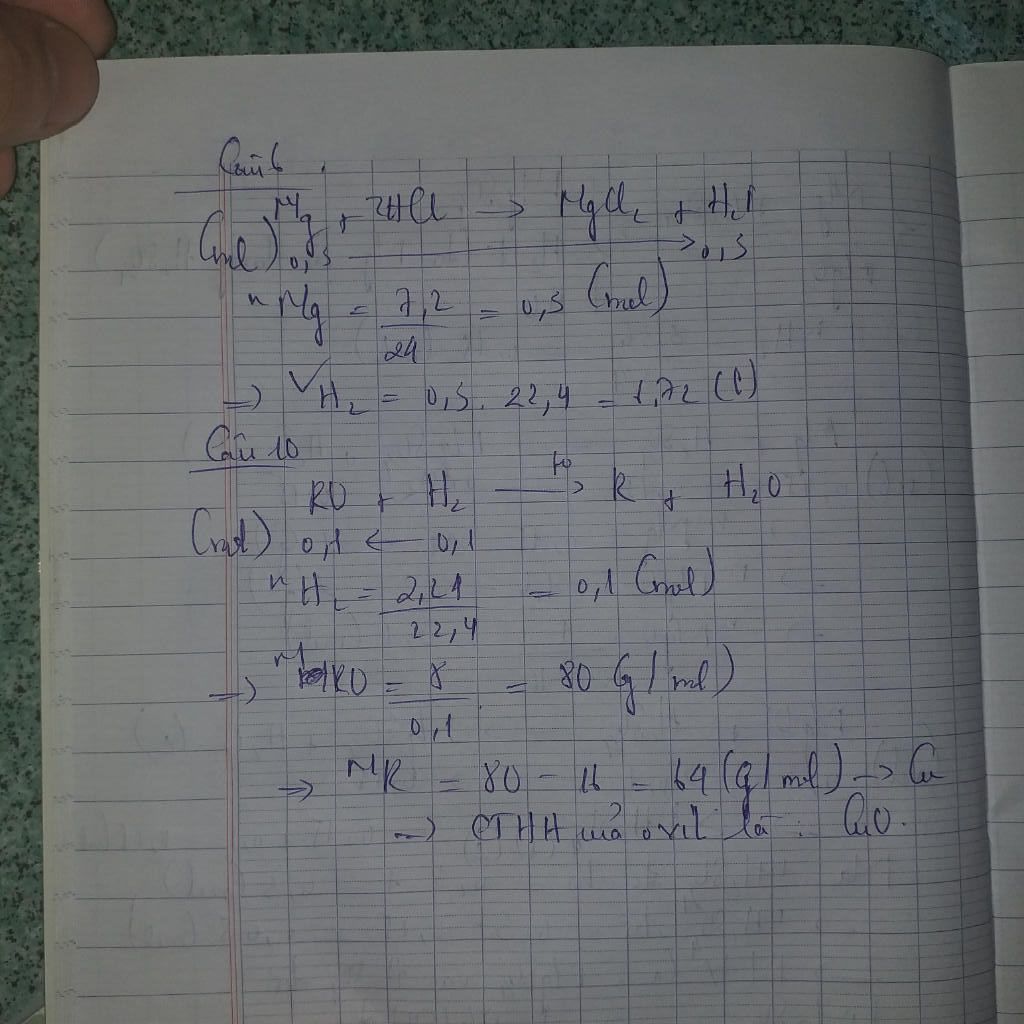 Câu 6.
Mg + 2HCl → MgCl₂ + H₂↑
(mol) 0,3 → 0,3
nMg = 7,2/24 = 0,3 (mol)
=> VH₂ = 0,3. 22,4 = 6,72 (l)
Câu 10
RO + H₂ —tº→ R + H₂O
(mol) 0,1 ← 0,1
nH₂ = 2,24/22,4 = 0,1 (mol)
=> MRO = 8/0,1 = 80 (g/mol)
=> MR = 80 - 16 = 64 (g/mol) → Cu
→ CTHH của oxit là : CuO.